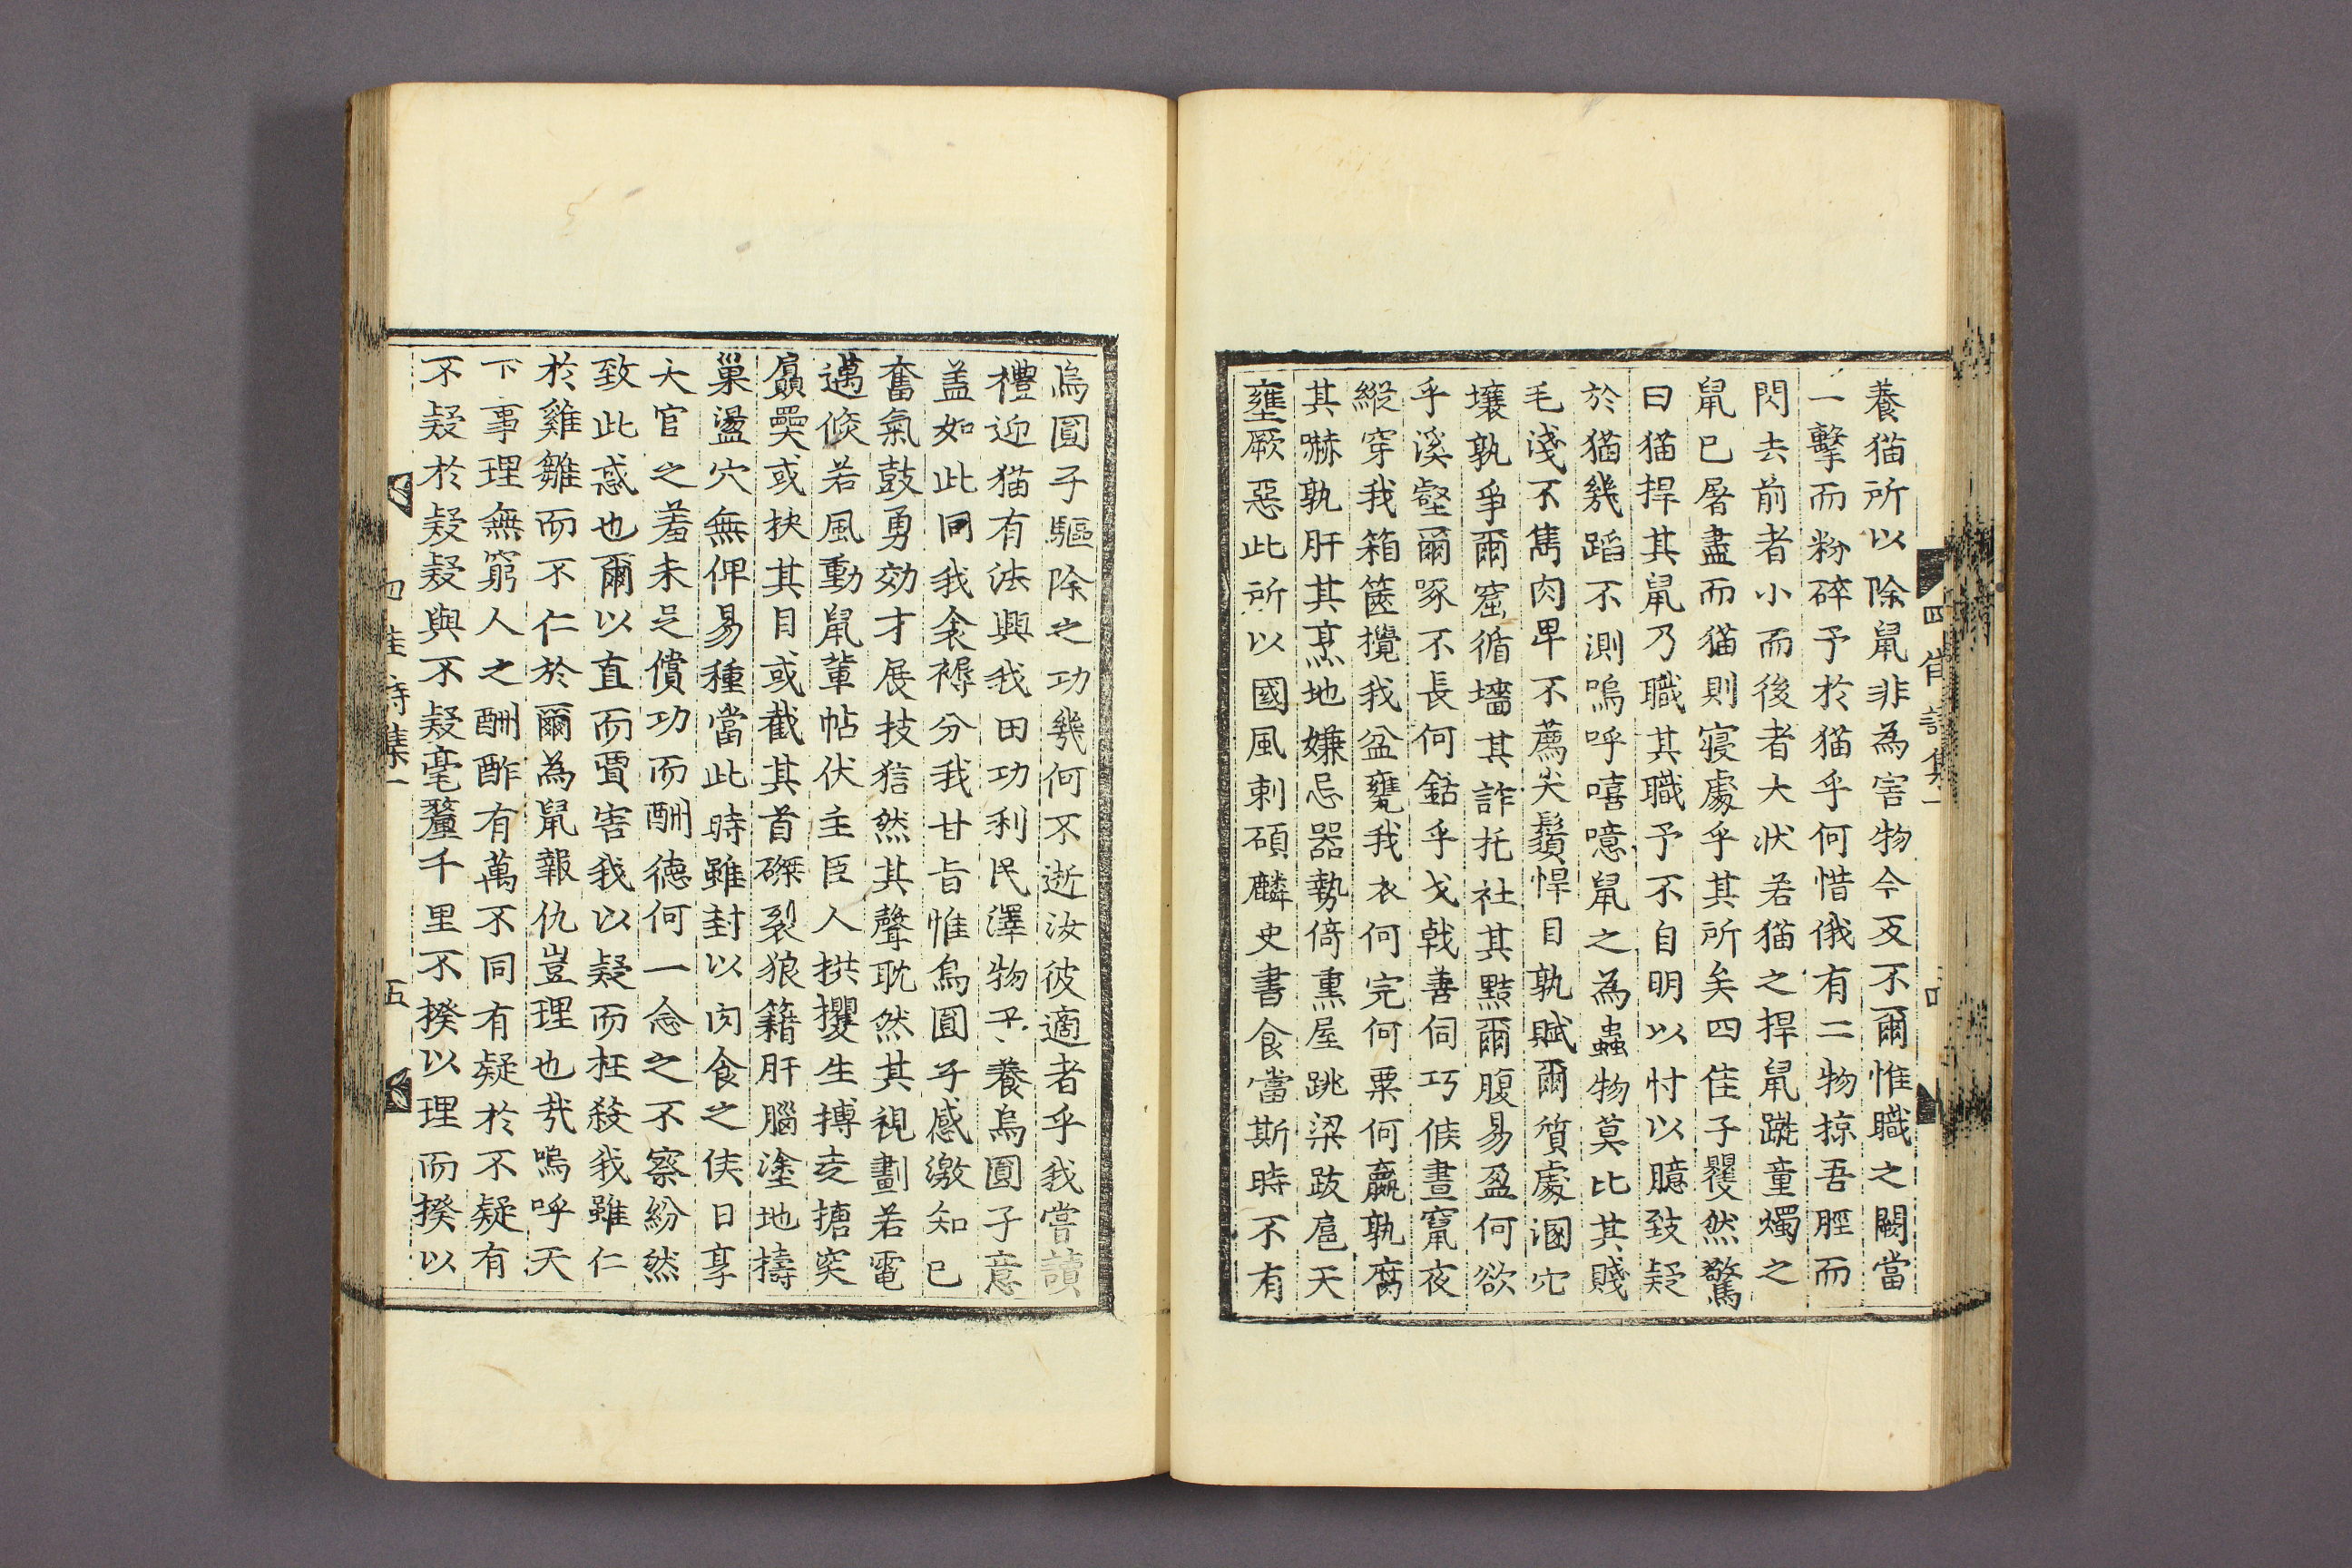 養猫所以除鼠非為害物今反不爾惟職之闕當
一擊而粉碎予於猫乎何惜俄有二物掠吾脛而
閃去前者小而後者大狀若猫之捍鼠蹴童燭之
鼠已屠盡而猫則寝處乎其所矣四佳子矍然驚
曰猫捍其鼠乃職其職予不自明以忖以臆致疑
於猫幾蹈不測嗚呼嘻噫鼠之為蟲物莫比其賤
毛淺不雋肉卑不薦尖鬚悍目孰賦爾質處溷穴
壤孰爭爾窟循墻其詐托社其黠爾腹易盈何欲
乎溪壑爾啄不長何銛乎戈戟善伺巧候晝竄夜
縱穿我箱篋攪我盆甕我衣何完何粟何贏孰腐
其嚇孰肝其烹地嫌忌器勢倚熏屋跳梁跋扈天
壅厥惡此所以國風刺碩麟史書食當斯時不有
四佳詩集一
烏圓子驅除之功幾何不逝汝彼適者乎我嘗讀
禮迎猫有法興我田功利民澤物予養烏圓子意
盖如此同我衾褥分我甘旨惟烏圓子感激知已
奮氣鼓勇効才展技狺然其聲耽然其視劃若電
邁倐若風動鼠輩帖伏主臣人拱攫生搏走搪突
贔㚃或抉其目或截其首磔裂狼籍肝腦塗地擣
巢盪穴無俾易種當此時雖封以肉食之侯日享
大官之羞未足償功而酬德何一念之不察紛然
致此惑也爾以直而賈害我以疑而枉殺我雖仁
於雞雛而不仁於爾為鼠報仇豈理也㦲嗚呼天
下事理無窮人之酬酢有萬不同有疑於不疑有
不疑於疑疑與不疑毫釐千里不揆以理而揆以
四佳詩集一
五